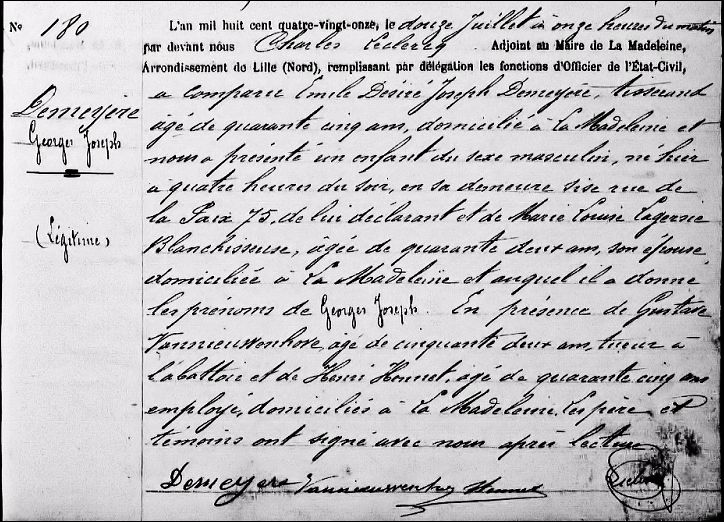 N° 180
L'an mil huit cent quatre-vingt-onze, le douze Juillet à onze heures du matin
par devant nous Charles Leclercq Adjoint au Maire de La Madeleine,
Arrondissement de Lille (Nord), remplissant par délégation les fonctions d'Officier de l'État-Civil,
a comparu Emile Désiré Joseph Demeyère, tisserand
âgé de quarante cinq ans, domicilié à La Madeleine et
nous a présenté un enfant du sexe masculin, né hier
à quatre heures du soir, en sa demeure sise rue de
la Paix 75, de lui déclarant et de Marie Louise
Blanchisseuse, âgée de quarante deux ans, son épouse,
domiciliée à La Madeleine et auquel il a donné
les prénoms de Georges Joseph. En présence de Gustave
Vannieuwenhove, âgé de cinquante deux ans, tueur à
l'abattoir et de Henri Honnet, âgé de quarante cinq ans
employé, domiciliés à La Madeleine. Les père et
témoins ont signé avec nous après lecture
Demeyère
Georges Joseph
(Légitime)
Demeyere Vannieuwenhove Honnet